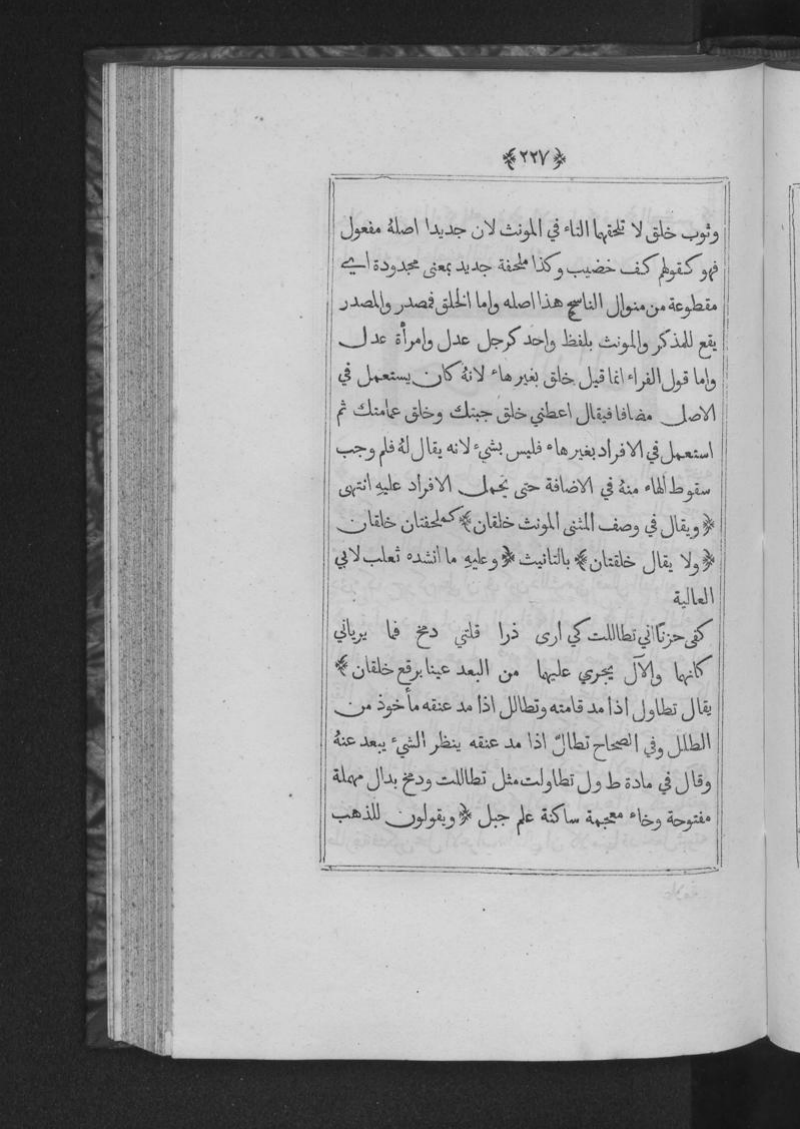 ﴿٢٢٧﴾
وثوب خلق لا تلحقهما التاء في المونث لان جديدا اصلهُ مفعول
فهو كقولهم كف خضيب وكذا ملحفة جديد بمعنى مجدودة اي
مقطوعة من منوال الناسج هذا اصله واما الخلق فمصدر والمصدر
يقع للمذكر والمونث بلفظ واحد كرجل عدل وامرأة عدل
واما قول الفراء انما قيل خلق بغير هاء لانهُ كان يستعمل في
الاصل مضافا فيقال اعطني خلق جبتك وخلق عمامتك ثم
استعمل في الافراد بغير هاء فليس بشيء لانه يقال لهُ فلم وجب
سقوط الهاء منهُ في الاضافة حتى يحمل الافراد عليهِ انتهى
﴿ويقال في وصف المثنى المونث خلقان﴾ كملحفتان خلقان
﴿ولا يقال خلقتان﴾ بالتانيث ﴿وعليهِ ما انشده ثعلب لابي
العالية
كفى حزنًا اني تطاللت كي ارى ذرا قلتي دمخ فما يرياني
كانهما والآل يجري عليهما من البعد عينا برقع خلقان﴾
يقال تطاول اذا مد قامته وتطالل اذا مد عنقه مأخوذ من
الطلل وفي الصحاح تطالّ اذا مد عنقه ينظر الشيء يبعد عنهُ
وقال في مادة ط ول تطاولت مثل تطاللت ودمخ بدال مهملة
مفتوحة وخاء معجمة ساكنة علم جبل ﴿ويقولون للذهب